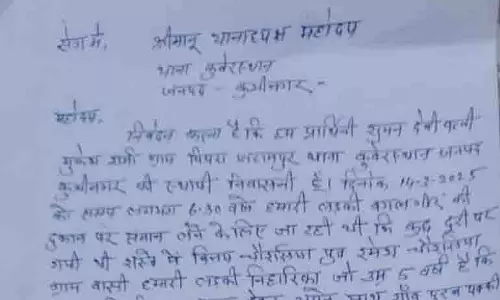 सेवा में, श्रीमान् थानाध्यक्ष महोदय
थाना कुबेरस्थान
जनपद - कुशीनगर -
महोदय,
निवेदन करना है कि हम प्रार्थिनी सुमन देवी पत्नी
मुकेश शर्मा ग्राम पिपरा थाना कुबेरस्थान जनपद
कुशीनगर की स्थायी निवासनी हैं। दिनांक 14-3-2025
के समय लगभग 6-30 बजे हमारी लड़की बगल गाँव की
दुकान पर समान लेने के लिए जा रही थी कि कुछ दूरी पर
गयी थी रास्ते में पुत्र रमेश
ग्राम वासी हमारी लड़की निहारिका जो उम्र 5 वर्ष है कि